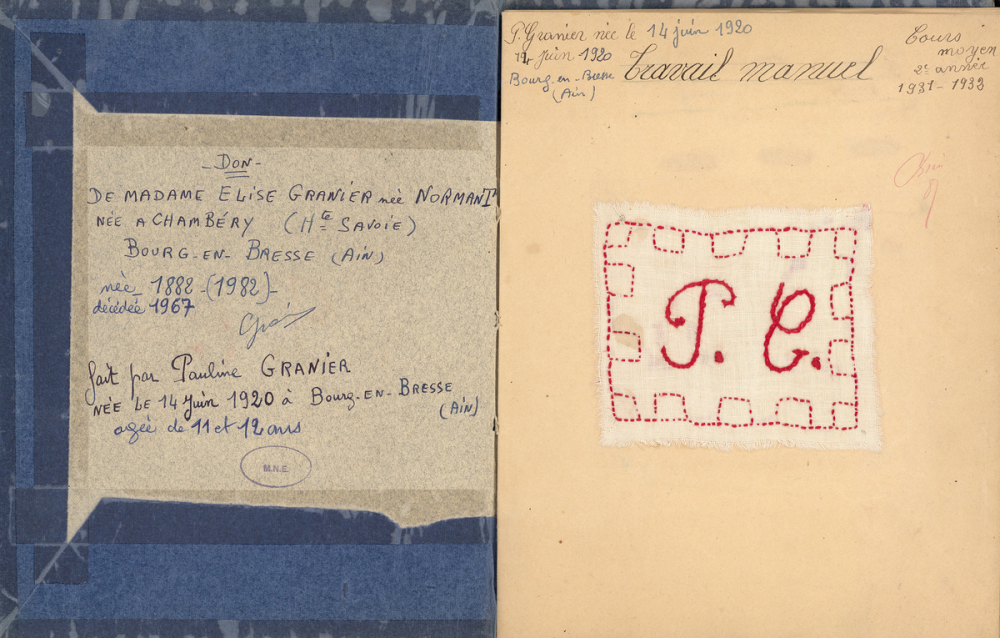 - DON -
DE MADAME ELISE GRANIER née NORMANT
NÉE A CHAMBÉRY (Hte SAVOIE)
BOURG-EN-BRESSE (AIN)
née 1888-(1982)-
décédée 1967
fait par Pauline GRANIER
NÉE LE 14 Juin 1920 à BOURG-EN-BRESSE
(AIN)
agée de 11 et 12 ans
M.N.E.
P. Granier née le 14 juin 1920
14 juin 1920
Bourg-en-Bresse
(Ain)
Travail manuel
Cours
moyen
2e année
1931-1932
P. G.